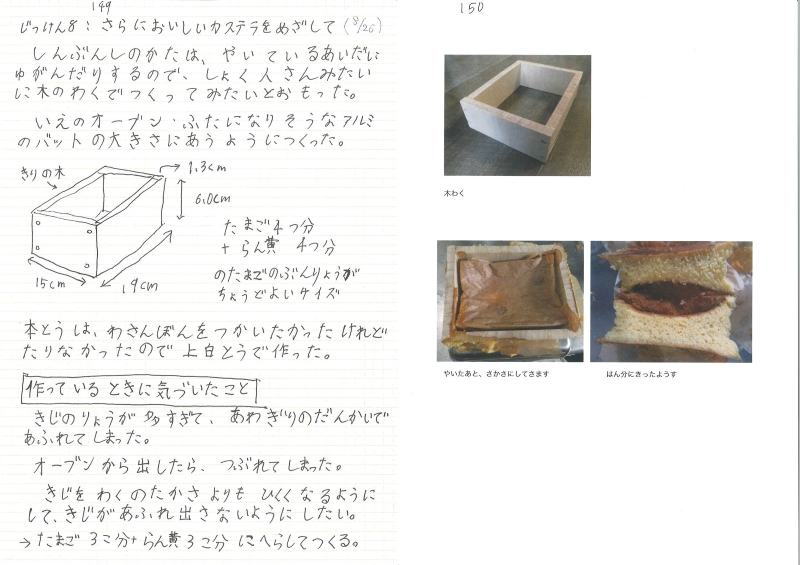 149
じっけん8：さらにおいしいカステラをめざして（8/26）
しんぶんしのかたは、やいているあいだに
ゆがんだりするので、しょく人さんみたい
に木のわくでつくってみたいとおもった。
いえのオーブン・ふたになりそうなアルミ
のバットの大きさにあうようにつくった。
きりの木
1.3cm
6.0cm
15cm
19cm
たまご4つ分
+らん黄 4つ分
のたまごのぶんりょうが
ちょうどよいサイズ
本とうは、わさんぼんをつかいたかったけれど
たりなかったので上白とうで作った。
作っているときに気づいたこと
きじのりょうが多すぎて、あわぎりのだんかいで
あふれてしまった。
オーブンから出したら、つぶれてしまった。
きじをわくのたかさよりもひくくなるように
して、きじがあふれ出さないようにしたい。
→たまご3こ分+らん黄3こ分にへらしてつくる。
150
木わく
やいたあと、さかさにしてさます
はん分にきったようす